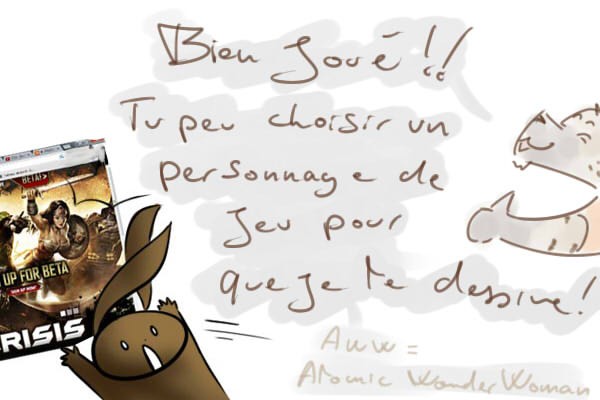 Bien Joué !!
Tu peu choisir un
personnage de
jeu pour
que je te dessine !
Aww =
Atomic Wonder Woman
BETA!
UP FOR BETA
RISIS